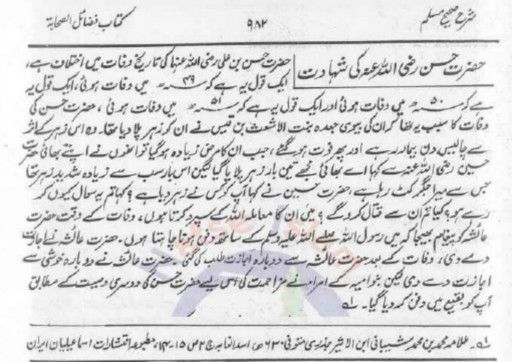 شرح صحیح مسلم
۹۸۲
کتاب فضائل الصحابۃ
حضرت حسن رضی اللہ عنہ کی شہادت
حضرت حسن بن علی رضی اللہ عنہما کی تاریخ وفات میں اختلاف ہے،
ایک قول یہ ہے کہ سنہ ۴۹ھ میں وفات ہوئی، ایک قول یہ
ہے کہ سنہ ۵۰ھ میں وفات ہوئی اور ایک قول یہ ہے کہ سنہ ۵۱ھ میں وفات ہوئی، حضرت حسن کی
وفات کا سبب یہ تھا کہ ان کی بیوی جعدہ بنت الاشعث بن قیس نے ان کو زہر پلا دیا تھا۔ وہ اس زہر کے اثر
سے چالیس دن بیمار رہے اور پھر فوت ہو گئے، جب ان کا مرض زیادہ ہو گیا تو انھوں نے اپنے بھائی حضرت
حسین رضی اللہ عنہ سے کہا اے بھائی مجھے تین بار زہر پلایا گیا لیکن اس بار سب سے زیادہ شدید زہر تھا
جس سے میرا جگر کٹ رہا ہے، حضرت حسین نے کہا آپ کو کس نے زہر دیا ہے؟ کہا تم یہ سوال کیوں کر
رہے ہو؟ کیا تم ان سے قتال کرو گے؟ میں ان کا معاملہ اللہ کے سپرد کرتا ہوں۔ وفات کے وقت حضرت
عائشہ کو پیغام بھیجا کہ میں رسول اللہ صلے اللہ علیہ وسلم کے ساتھ دفن ہونا چاہتا ہوں۔ حضرت عائشہ نے اجازت
دے دی، وفات کے بعد حضرت عائشہ سے دوبارہ اجازت طلب کی گئی، حضرت عائشہ نے دوبارہ خوشی سے
اجازت دے دی لیکن بنو امیہ کے امراء نے مزاحمت کی اس لیے حضرت حسن کی دوسری وصیت کے مطابق
آپ کو بقیع میں دفن کر دیا گیا۔ لہ
لہ۔ علامہ محمد بن محمد شیبانی ابن الاثیر جزری متوفی ۶۳۰ھ، اسد الغابہ ج ۲ ص ۱۵-۱۴، مطبوعہ انتشارات اسماعیلیان ایران